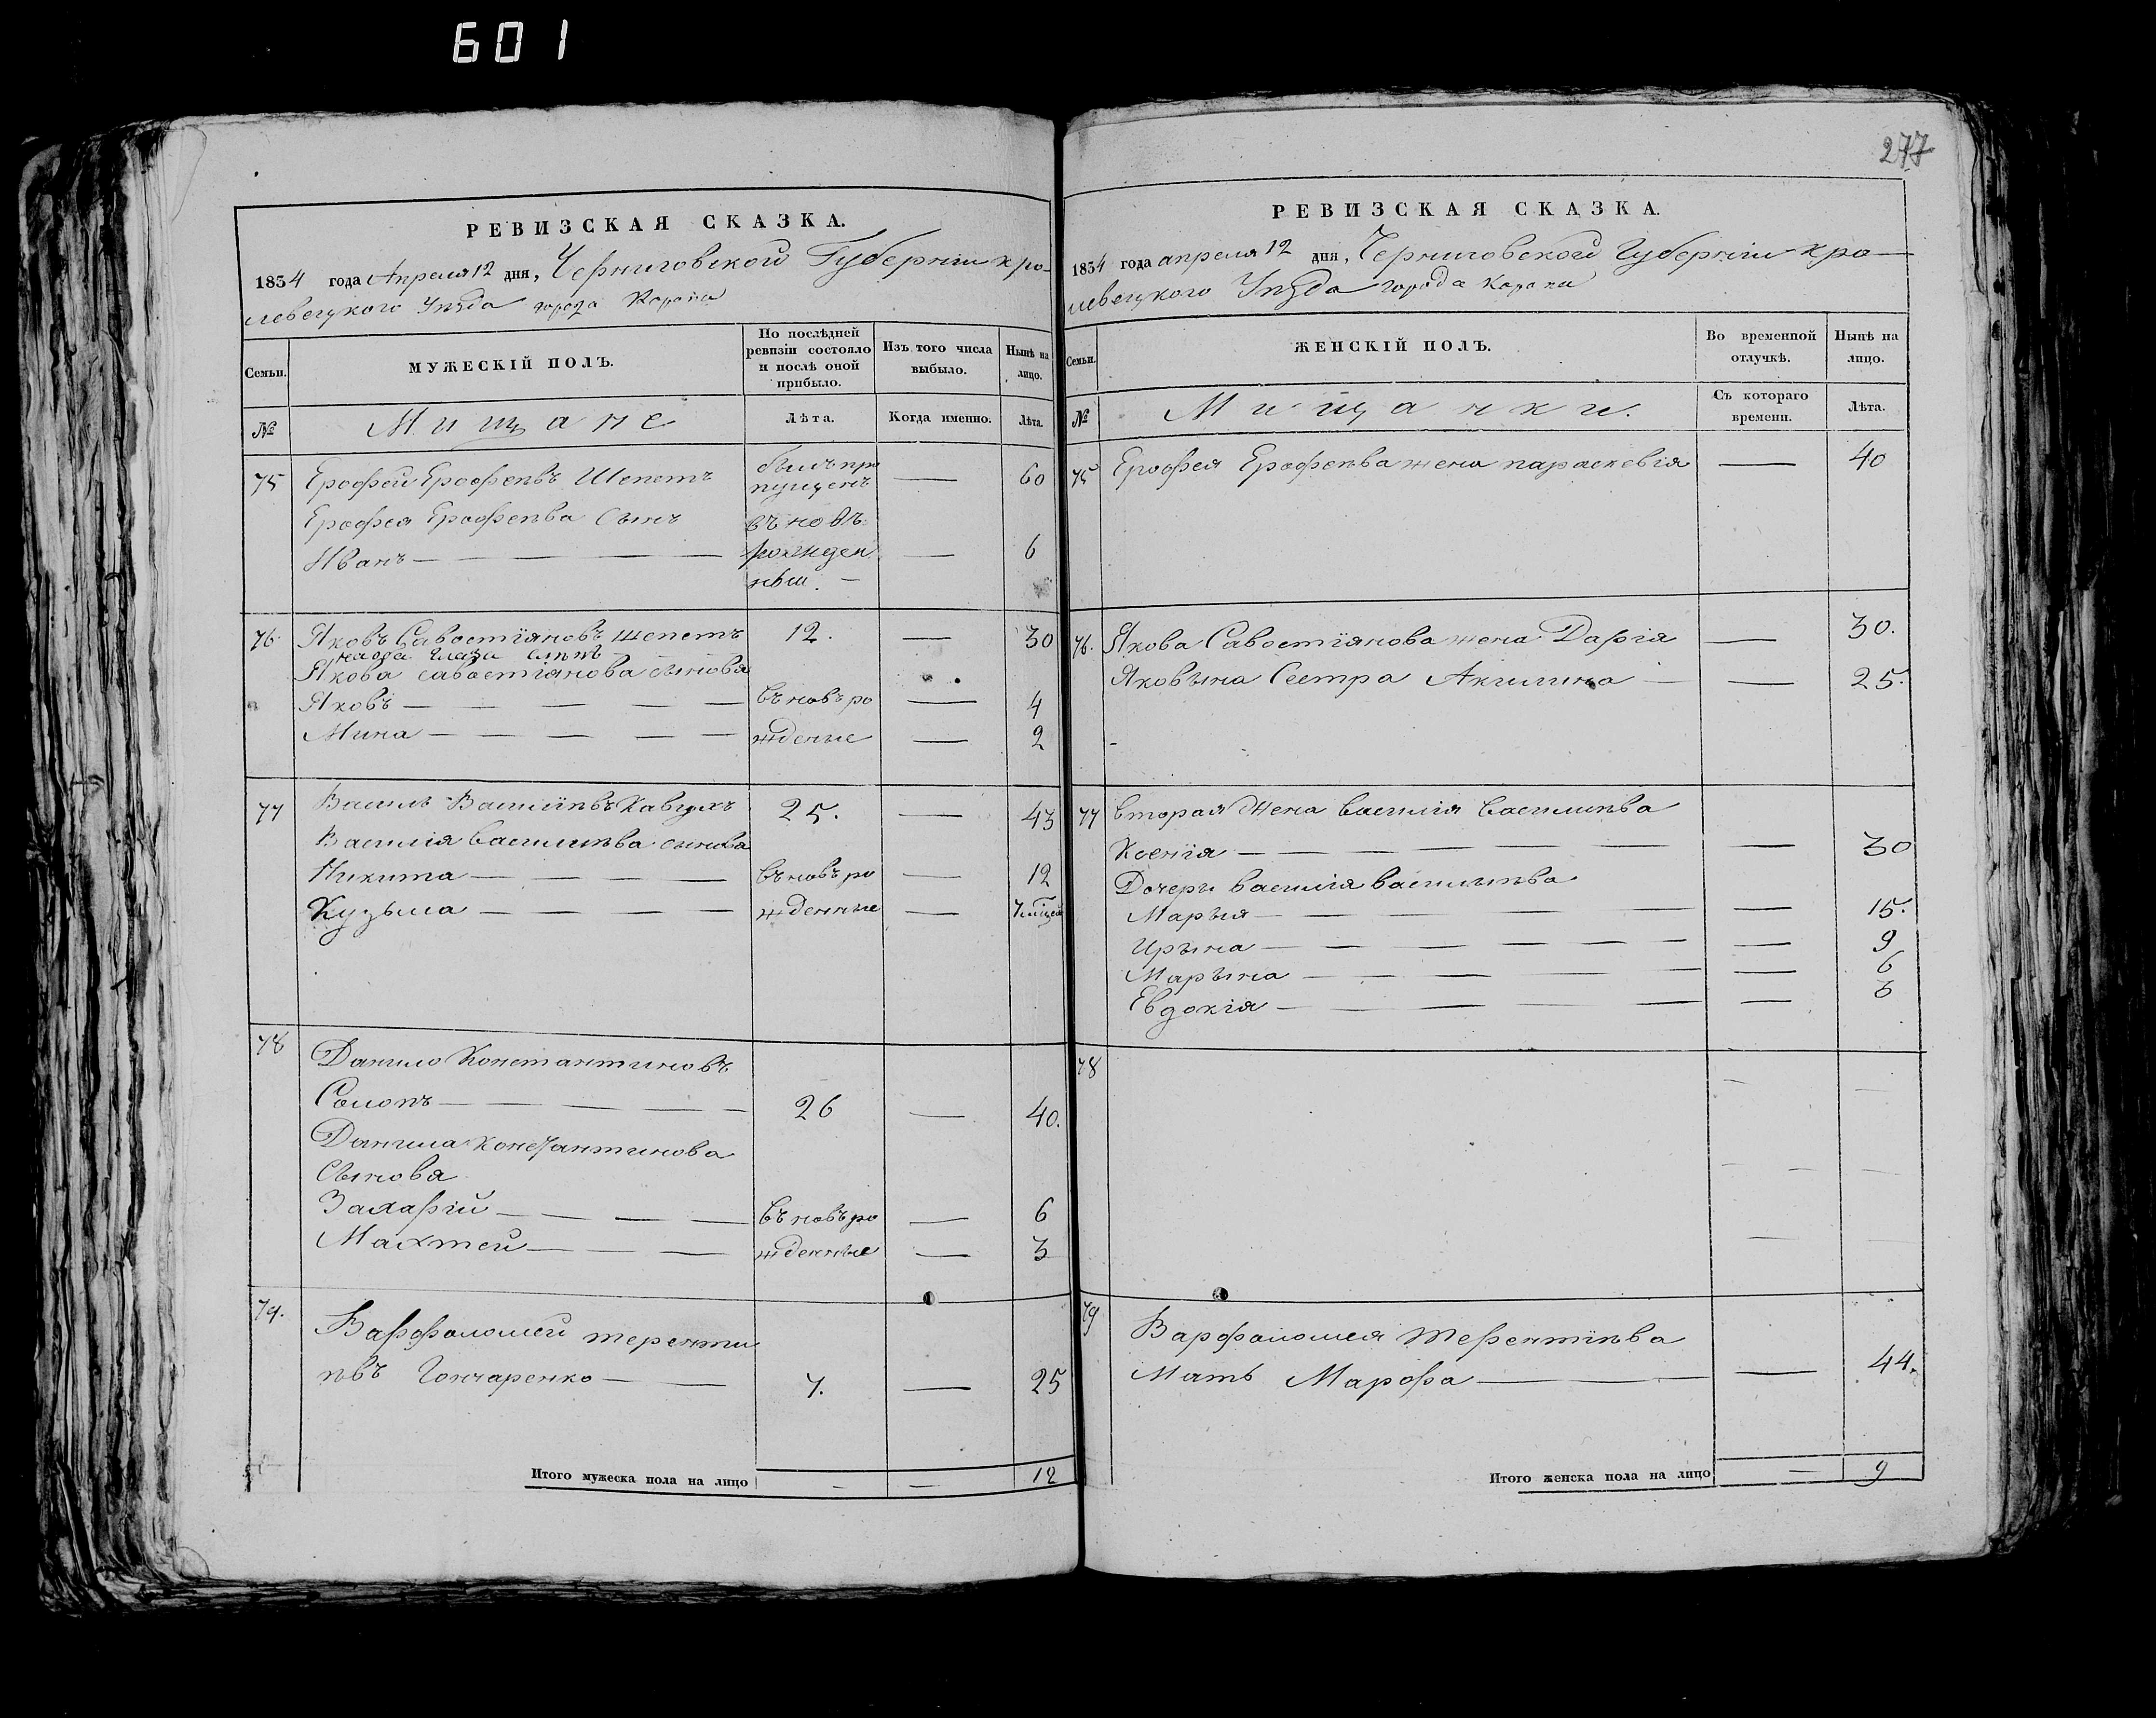 601
277
РЕВИЗСКАЯ СКАЗКА.
1834 года Апреля 12 дня, Черниговской Губернии кро-
левецкого Уѣзда города Коропа
Семьи.
МУЖЕСКІЙ ПОЛЪ.
По послѣдней
ревизіи состояло
и послѣ оной
прибыло.
Изъ того числа
выбыло.
Нынѣ на
лицо.
№
Мищане
Лѣта.
Когда именно.
Лѣта.
75 Ерофей Ерофеѣвъ Шепетъ былъ про — 60
пущенъ
Ерофея Ерофеѣва Сынъ въновъ
Иванъ — рожден — 6
ныи. —
76 Яковъ Савостіяновъ шепетъ 12. — 30
на оба глаза слѣпъ
Якова савостіянова сыновя
Яковъ — въновъ ро — 4
Мина — жденые — 2
77 Василь Василіѣвъ 25. — 43
Василія василиѣва сынова
Никита — въновъ ро — 12
Кузьма — жденные —
78 Данило Константиновъ
Солопъ — 26 — 40.
Данила константинова
Сынова
Захарій — въновъ ро — 6
Махтей — жденные — 3
79. Варфоломей теренти
ѣвъ Гончаренко — 7. — 25
Итого мужеска пола на лицо — — 12
РЕВИЗСКАЯ СКАЗКА.
1834 года апреля 12 дня, Черниговской Губерніи кро—
левецкого Уѣзда города Коропа
Семьи.
ЖЕНСКІЙ ПОЛЪ.
Во временной
отлучкѣ.
Нынѣ на
лицо.
№
Мищанки.
Съ котораго
времени.
Лѣта.
75 Ерофея Ерофеѣва жена параскевія — 40
76. Якова Савостіянова жена Дарія — 30.
Яковына Сестра Акилина — 25.
77 вторая жена василія василиѣва
Ксенія — — 30
Дочери василія василиѣва
Марыя — — 15.
Ирына — — 9
Марына — — 6
Евдокія — — 3
78
79 Варфоломея терентіѣва
Мать Марфа — — 44.
Итого женска пола на лицо — 9